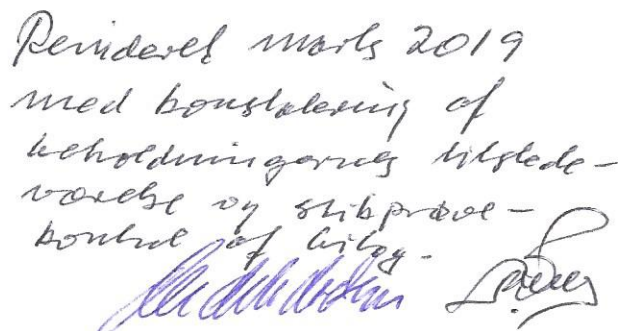 Revideret marts 2019
med konstatering af
beholdningernes tilstede-
værelse og stikprøve-
kontrol af bilag.